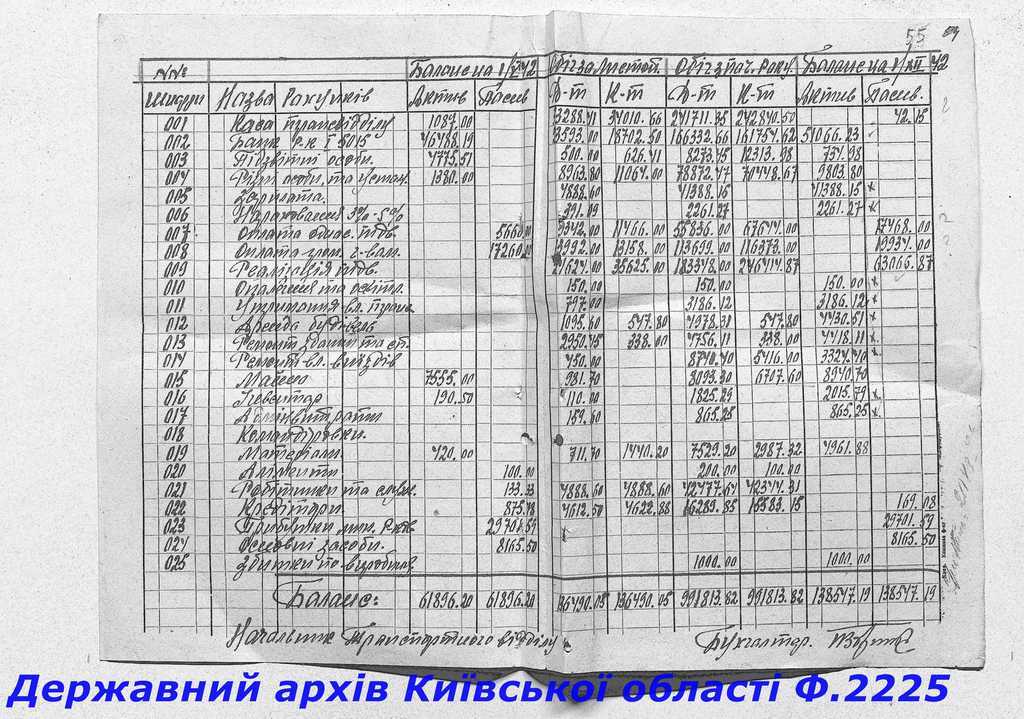 55
№№ Баланс на 1/VI-42 Обіг за листоп. Обіг з поч. року. Баланс на 1/XII 42
Шифри Назва рахунків Актив Пасив Д-т К-т Д-т К-т Актив Пасив.
001 Каса трансвідділу 1087.00 3288.41 34010.66 241711.35 242840.50 42.15
002 Банк р.к I 5015 46488.19 3593.00 18702.50 166332.66 161754.62 51066.23
003 Підзвітні особи. 4775.51 500.00 626.41 8273.45 12313.98 734.98
004 Фізи особи та устан. 1380.00 8963.80 11064.00 78872.47 70448.67 9803.80
005 Зарплата. 4888.60 41388.15 41388.15 x
006 Нараховання 3%-5% 391.09 2261.27 2261.27 x
007 Оплата однос. підв. 5660.00 9342.00 11466.00 55836.00 67644.00 17468.00
008 Оплата гром. г-вам. 17260.00 3992.00 13158.00 113699.00 116373.00 19934.00
009 Реалізація підв. 21624.00 35625.00 183348.00 246414.87 63066.87
010 Опалення та освітл. 150.00 150.00 150.00 x
011 Утримання вл. трансп. 797.00 3186.12 3186.12 x
012 Аренда будівель 1095.60 547.80 4978.31 547.80 4430.51 x
013 Ремонт здання та ст. 2950.45 338.00 4756.11 338.00 4418.11 x
014 Ремонт вл. виїздів 450.00 8740.40 5416.00 3324.40 x
015 Масло 7555.00 981.70 8093.30 6707.60 8940.70
016 Інвентар 190.50 110.00 1825.29 2015.79 x
017 Адмінвитрати 159.60 865.25 865.25 x
018 Командіровки.
019 Матеріали 420.00 711.70 1440.20 7529.20 2987.32 4961.88
020 Аліменти 100.00 200.00 100.00
021 Робітники та служ. 133.33 4888.60 4888.60 42477.64 42344.31
022 Кредітори. 875.48 4612.50 4622.88 16289.85 15583.15 169.08
023 Прибутки мин. років 29701.59 29701.59
024 Основні засоби. 8165.50 8165.50
025 Збитки по виробниц. 1000.00 1000.00
Баланс: 61896.20 61896.20 136490.05 136490.05 991813.82 991813.82 138547.19 138547.19
Начальник Транспортного відділу Бухгалтер.
Державний архів Київської області Ф.2225